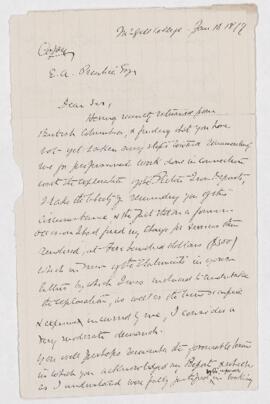 McGill College Jan 18 1877
Copy
E. A. Prentice Esq
Dear Sir,
Having recently returned from
British Columbia, & finding that you have
not yet taken any steps toward remunerating
me for professional work done in connection
with the exploration of the Iron Deposits,
I take the liberty of reminding you of this
circumstance & the fact that on a former
occasion I had fixed my charge for services then
rendered, at five hundred dollars ($500)
which in view of the statements in your
letters by which I was induced to undertake
the exploration, as well as the time occupied
& expenses incurred by me, I consider a
very moderate demand.
You will perhaps remember the favourable terms
in which you acknowledged my Report, & which
as I understood were fully justified in looking